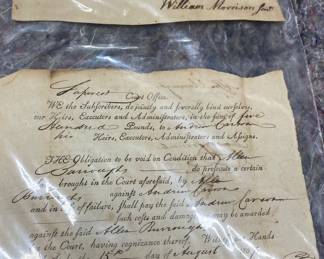 William Morrison Junr
Court Office.
WE the Subscribers, do jointly and severally bind ourselves,
our Heirs, Executors and Administrators, in the sum of five
Hundred Pounds, to Andrew Carson
his Heirs, Executors, Administrators and Assigns.
THE Obligation to be void on Condition that Allen
Burroughs do prosecute a certain
brought in the Court aforesaid, by Allen
Burroughs against Andrew Carson
and in case of failure, shall pay the said Andrew Carson
such costs and damages may be awarded
against the said Allen Burroughs
the Court, having cognizance thereof. Hands
day of August